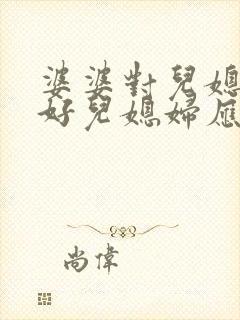 婆婆對兒媳
好兒媳婦應
尚偉